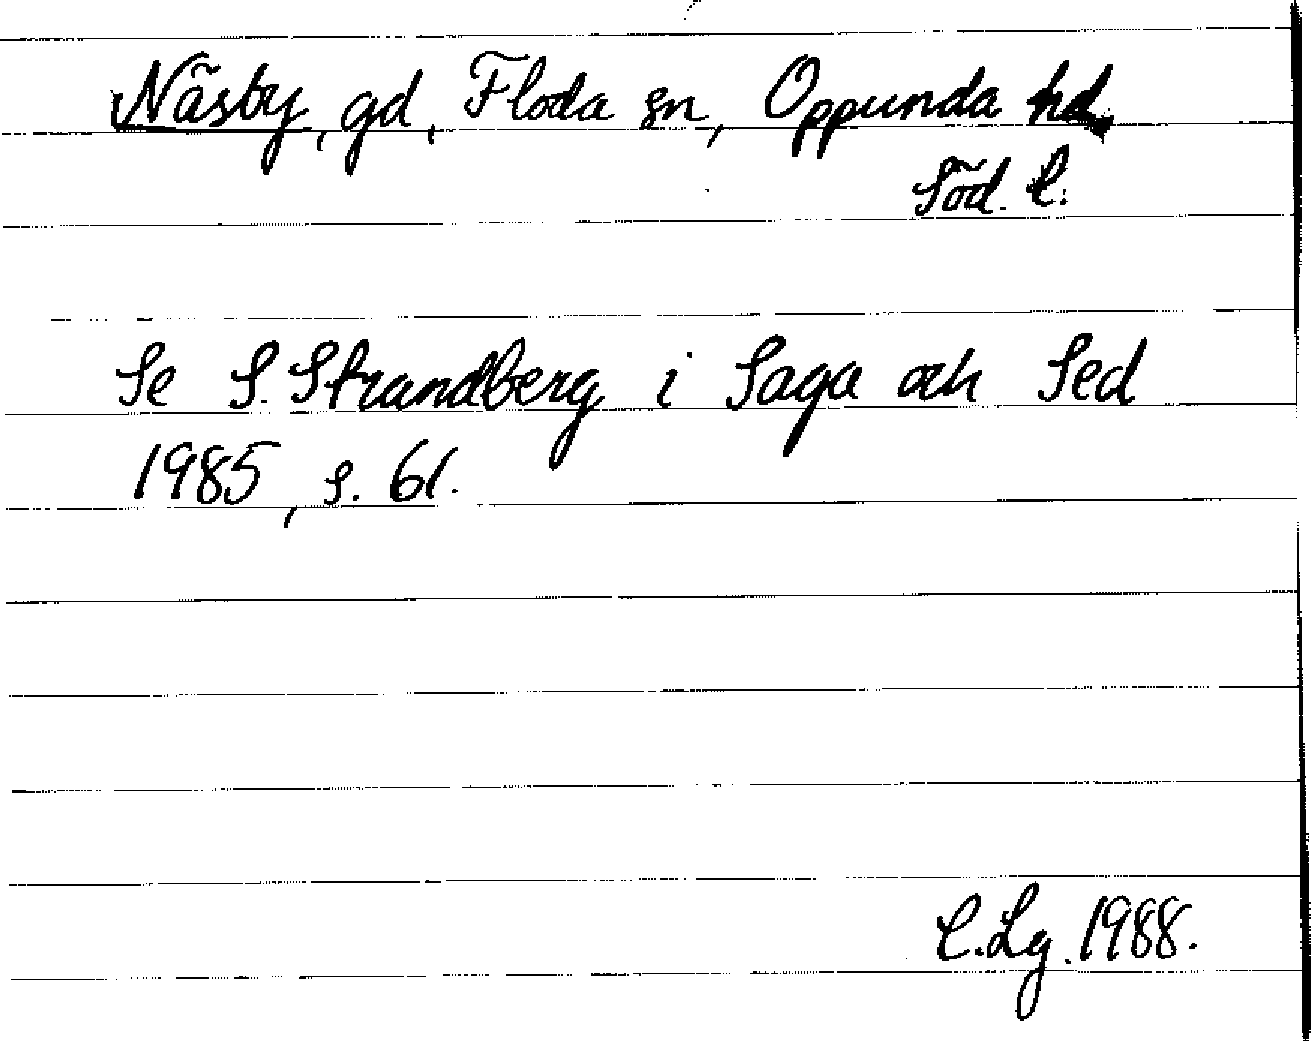 Näsby, gd, Floda sn, Oppunda hd.
Söd. l.
Se S. Strandberg i Saga och Sed
1985, s. 61.
C. Lg. 1988.